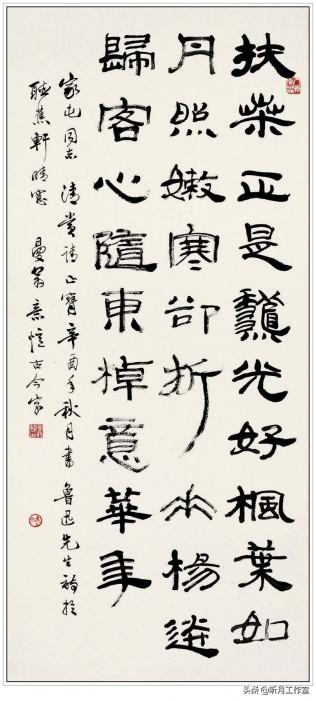 扶桒正是龝光好楓葉如
丹照嫩寒卻折垂楊送
歸客心隨東棹意華年
同志 清賞 正 辛酉年秋月書 魯迅先生詩於
聽蕉軒晴窗 曼翁 意憶古今字
头条@昕月工作室